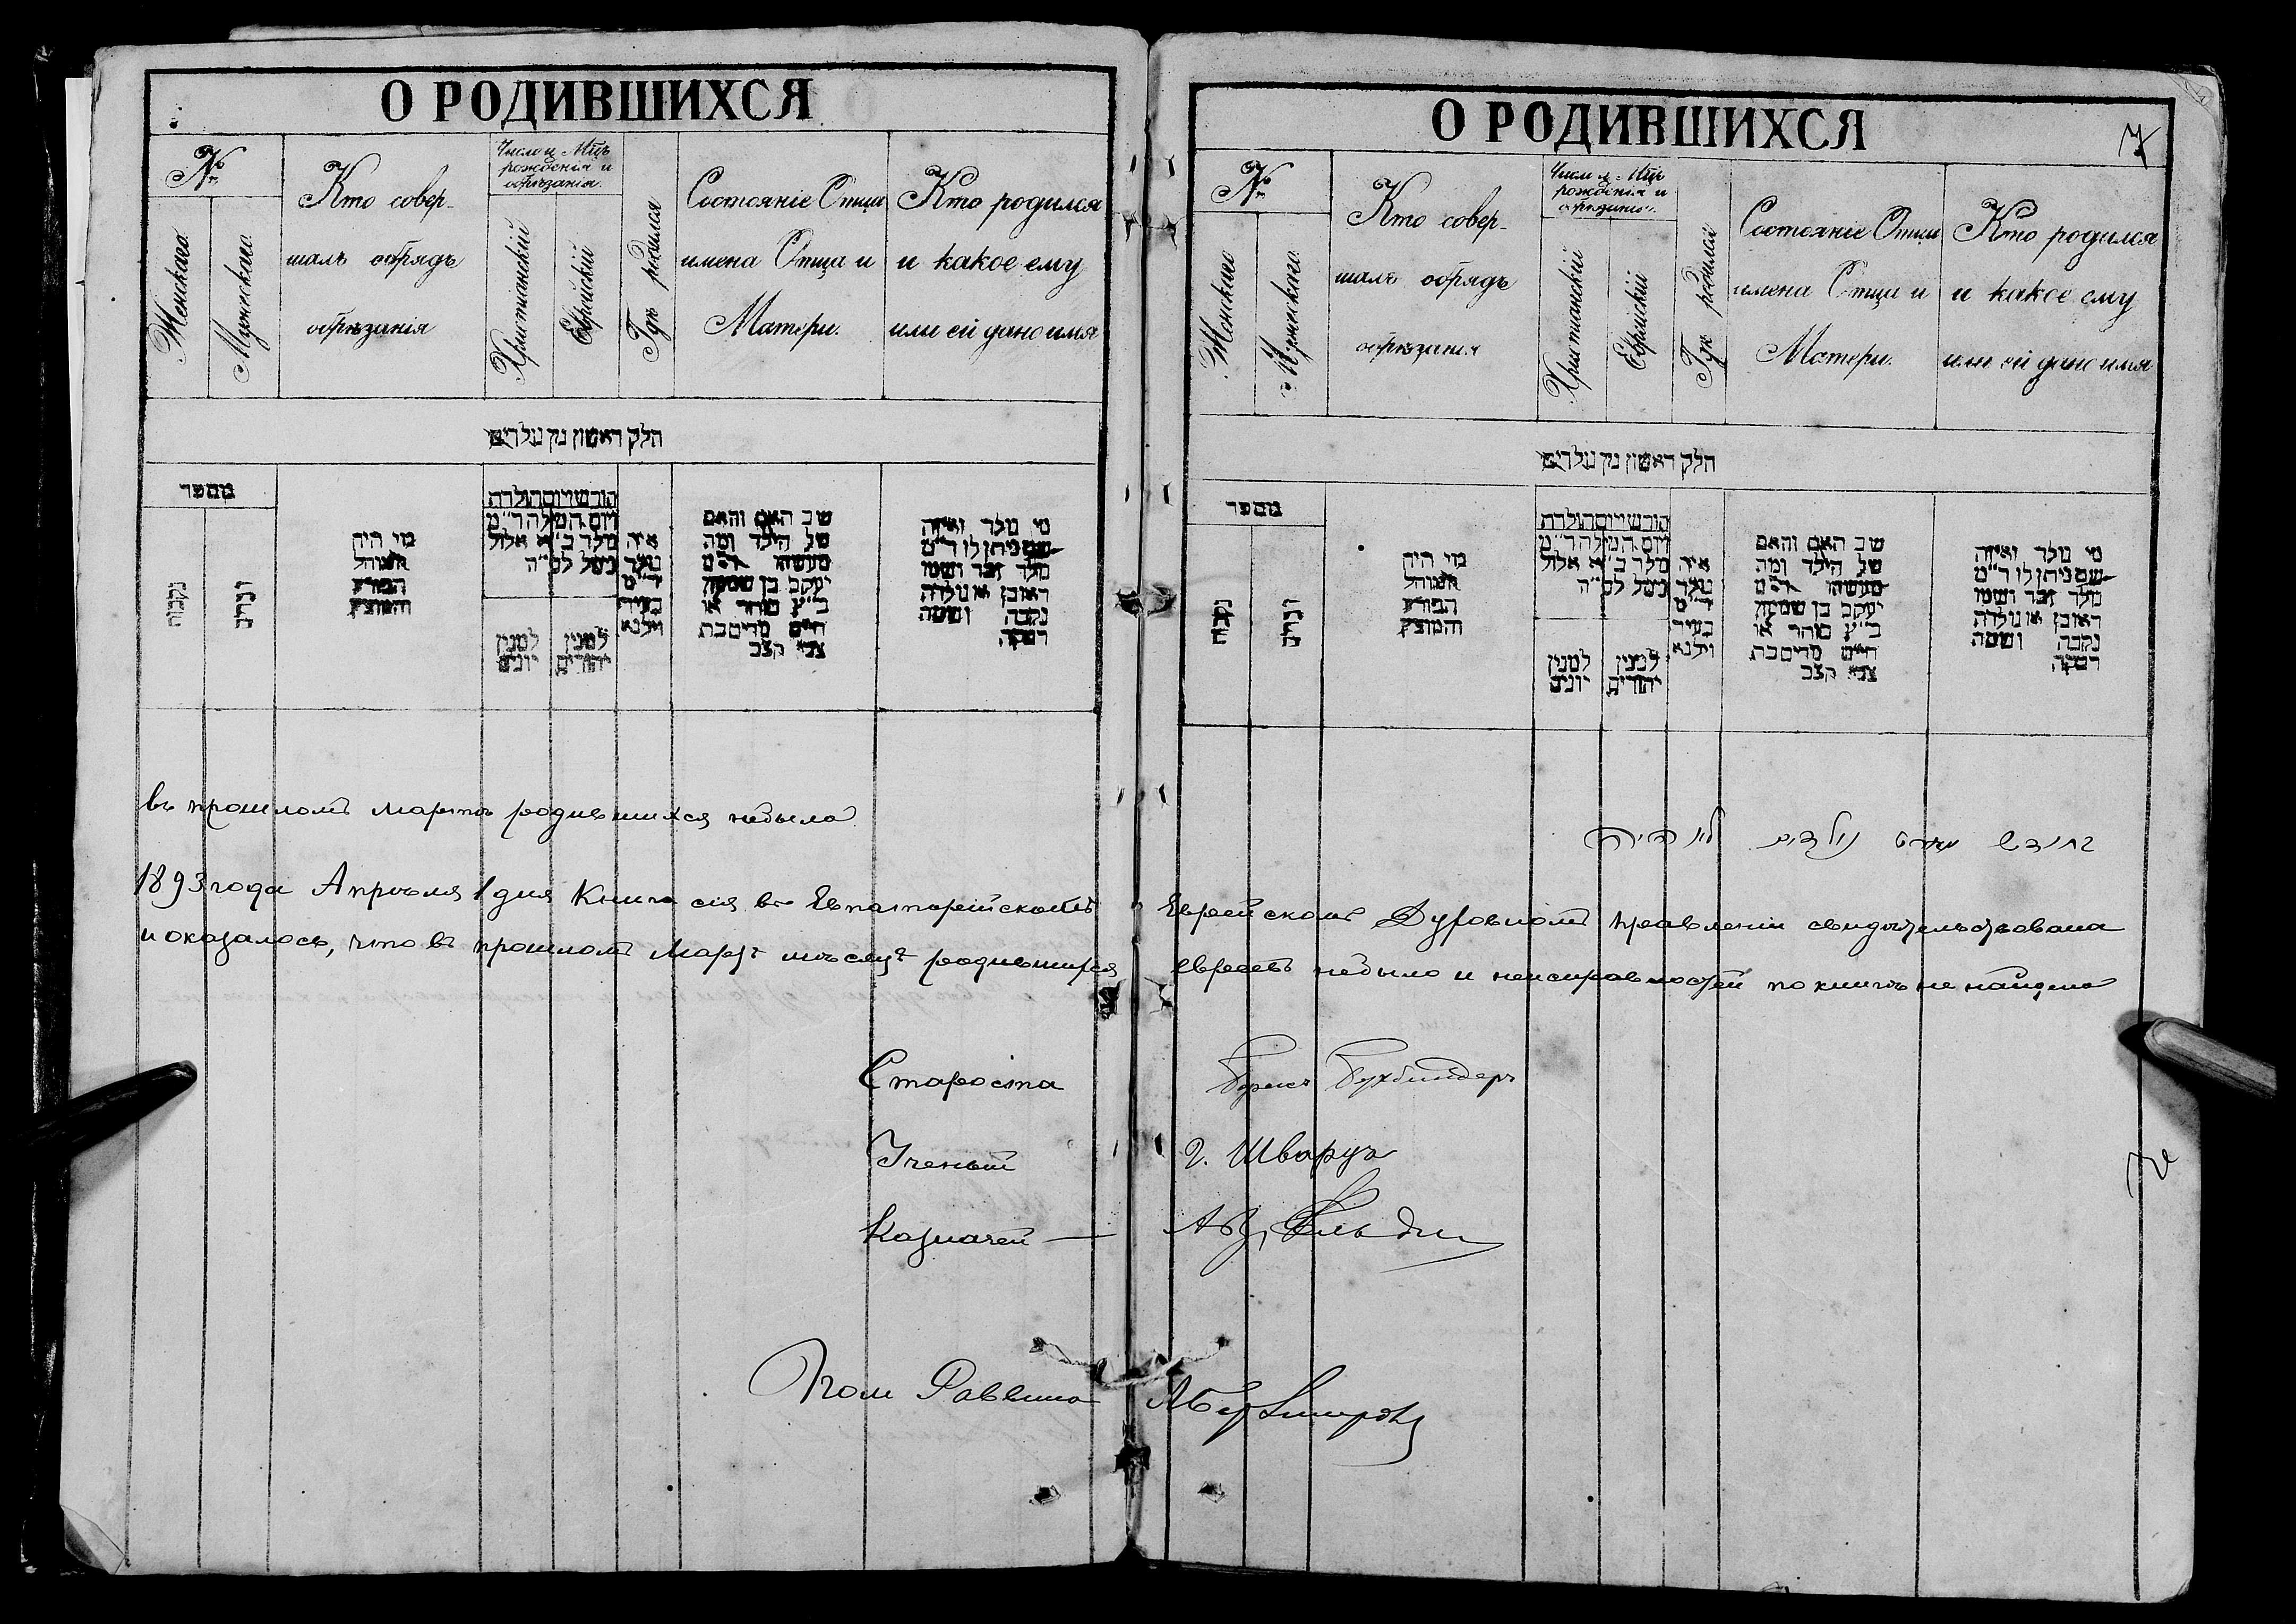 О РОДИВШИХСЯ
№
Женскаго
Мужескаго
Кто совер-
шалъ обрядъ
обрѣзанія
Число и Мцъ
рожденія и
обрѣзанія.
Христіанскій
Еврейскій
Гдѣ родился
Состояніе Отца
имена Отца и
Матери.
Кто родился
и какое ему
или ей дано имя
חלק ראשון מן נולדים
מספר
נקבות
זכרים
מי היה
המוהל
הפורע
והמוצץ
חודש ויום הולדת
ויום המילה ד״מ
נולד ב״א אלול
נמול לס״ה
למנין
יונים
למנין
יהודים
איה
נולד
ד״מ
בעיר
וילנא
שם האב והאם
של הילד ומה
מעשהו ד״מ
יעקב בן שמעון
כ״ץ סוחר או
חיים מרים בת
צבי קצב
מי נולד ואיזה
שם ניתן לו ד״מ
נולד זכר ושמו
ראובן או נולדה
נקבה ושמה
רבקה
въ прошломъ мартѣ родившихся небыло
1893 года Апрѣля 1 дня Книга сія въ Евпаторійскомъ
и оказалось, что въ прошломъ Мартѣ мѣсяцѣ родившихся
Староста
Ученый
Казначей —
Пом Раввина
О РОДИВШИХСЯ
7
№
Женскаго
Мужескаго
Кто совер-
шалъ обрядъ
обрѣзанія
Число и Мцъ
рожденія и
обрѣзанія.
Христіанскій
Еврейскій
Гдѣ родился
Состояніе Отца
имена Отца и
Матери.
Кто родился
и какое ему
или ей дано имя
חלק ראשון מן נולדים
מספר
נקבות
זכרים
מי היה
המוהל
הפורע
והמוצץ
חודש ויום הולדת
ויום המילה ד״מ
נולד ב״א אלול
נמול לס״ה
למנין
יונים
למנין
יהודים
איה
נולד
ד״מ
בעיר
וילנא
שם האב והאם
של הילד ומה
מעשהו ד״מ
יעקב בן שמעון
כ״ץ סוחר או
חיים מרים בת
צבי קצב
מי נולד ואיזה
שם ניתן לו ד״מ
נולד זכר ושמו
ראובן או נולדה
נקבה ושמה
רבקה
בחודש מארט נולדים לא היה
Еврейскомъ Духовномъ правленіи свидѣтельствована
евреевъ небыло и неисправностей по книгѣ не найдено
Борисъ Бухбиндеръ
Г. Шварцъ